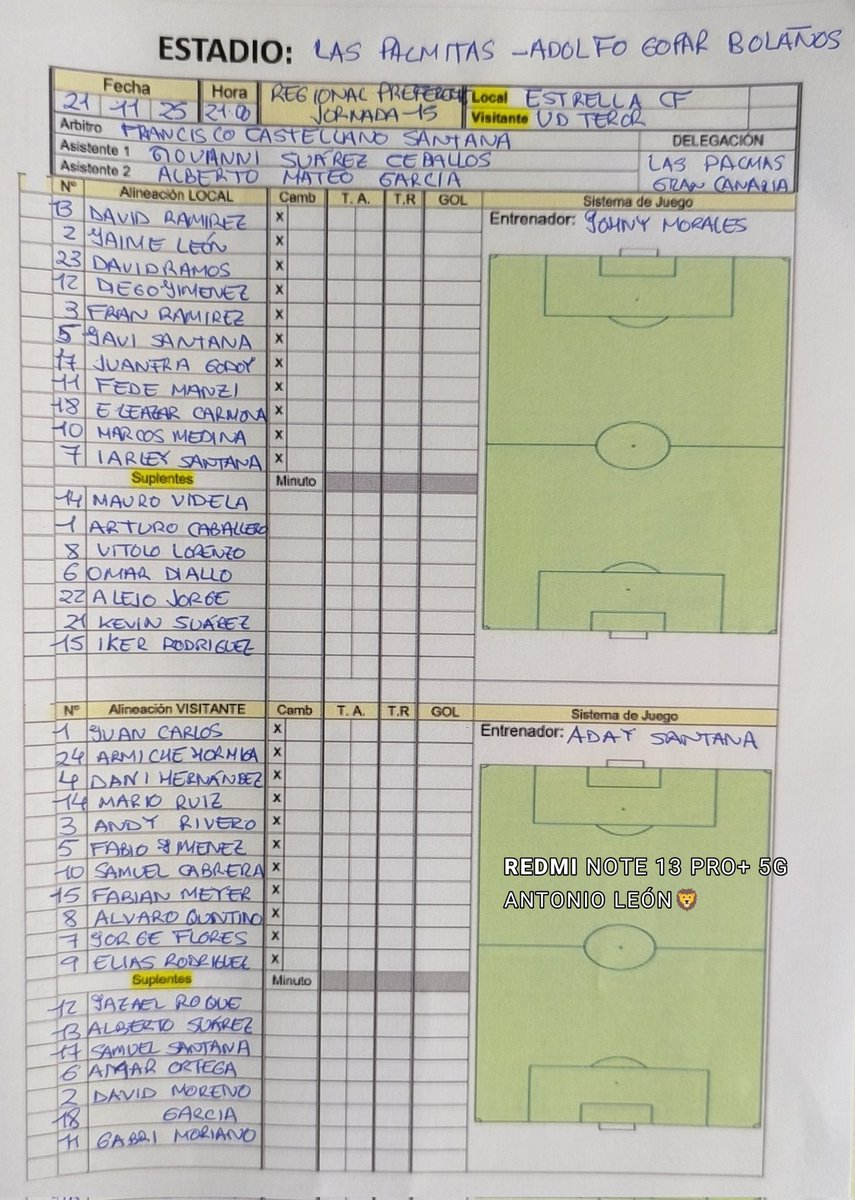 ESTADIO: LAS PALMITAS - ADOLFO GOPAR BOLAÑOS
Fecha Hora REGIONAL PREFERENTE Local ESTRELLA CF
21 11 25 21:00 JORNADA-15 Visitante UD TEROR
Arbitro FRANCISCO CASTELLANO SANTANA DELEGACIÓN
Asistente 1 GIOVANNI SUÁREZ CEBALLOS LAS PALMAS
Asistente 2 ALBERTO MATEO GARCIA GRAN CANARIA
Nº Alineación LOCAL Camb T. A. T.R GOL Sistema de Juego
13 DAVID RAMIREZ X Entrenador: JOHNY MORALES
2 JAIME LEÓN X
23 DAVID RAMOS X
12 DIEGO JIMENEZ X
3 FRAN RAMIREZ X
5 JAVI SANTANA X
17 JUANFRA GODOY X
11 FEDE MANZI X
18 ELEAZAR CARMONA X
10 MARCOS MEDINA X
7 IARLEY SANTANA X
Suplentes Minuto
14 MAURO VIDELA
1 ARTURO CABALLERO
8 VITOLO LORENZO
6 OMAR DIALLO
22 ALEJO JORGE
21 KEVIN SUÁREZ
15 IKER RODRIGUEZ
Nº Alineación VISITANTE Camb T. A. T.R GOL Sistema de Juego
1 JUAN CARLOS X Entrenador: ADAY SANTANA
24 ARMICHE HORMIGA X
4 DANI HERNÁNDEZ X
14 MARIO RUIZ X
3 ANDY RIVERO X
5 FABIO JIMENEZ X
10 SAMUEL CABRERA X
15 FABIAN MEYER X
8 ALVARO QUINTINO X
7 JORGE FLORES X
9 ELIAS RODRIGUEZ X
Suplentes Minuto
12 JAZAEL ROQUE
13 ALBERTO SUÁREZ
17 SAMUEL SANTANA
6 ORTEGA
2 DAVID MORENO
18 GARCIA
11 GABRI MORIANO
REDMI NOTE 13 PRO+ 5G
ANTONIO LEÓN🦁